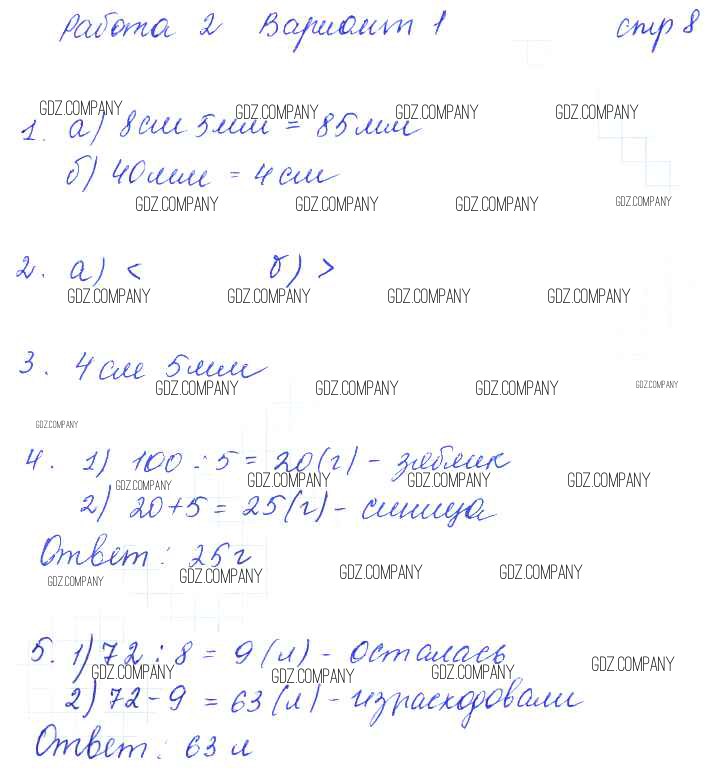 Работа 2 Вариант 1 стр 8
GDZ.COMPANY GDZ.COMPANY GDZ.COMPANY GDZ.COMPANY
1. а) 8см 5мм = 85мм
б) 40мм = 4см
GDZ.COMPANY GDZ.COMPANY GDZ.COMPANY GDZ.COMPANY
2. а) < б) >
GDZ.COMPANY GDZ.COMPANY GDZ.COMPANY GDZ.COMPANY
3. 4см 5мм
GDZ.COMPANY GDZ.COMPANY GDZ.COMPANY GDZ.COMPANY
GDZ.COMPANY
4. 1) 100 : 5 = 20(г) - зяблик
GDZ.COMPANY GDZ.COMPANY GDZ.COMPANY GDZ.COMPANY
2) 20+5 = 25(г) - синица
Ответ: 25г
GDZ.COMPANY GDZ.COMPANY GDZ.COMPANY GDZ.COMPANY
5. 1) 72 : 8 = 9(л) - осталась
GDZ.COMPANY GDZ.COMPANY GDZ.COMPANY GDZ.COMPANY
2) 72-9 = 63(л) - израсходовали
Ответ: 63 л